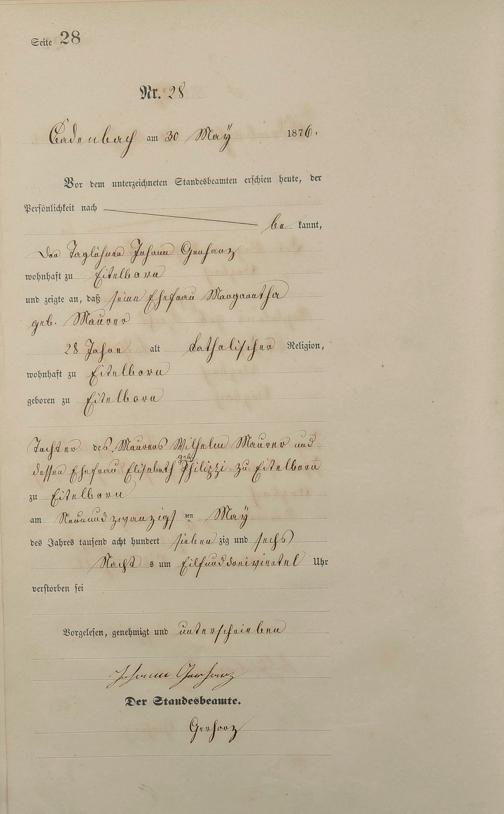 Seite 28
Nr. 28
Cadenbach am 30 May 1876.
Vor dem unterzeichneten Standesbeamten erschien heute, der
Persönlichkeit nach
be kannt,
Der Taglöhner Johann Gerharz
wohnhaft zu Eitelborn
und zeigte an, daß seine Ehefrau Margaretha
geb. Maurer
28 Jahre alt katholischer Religion,
wohnhaft zu Eitelborn
geboren zu Eitelborn
Tochter des Maurers Wilhelm Maurer und
dessen Ehefrau Elisabeth geb. Philippi zu Eitelborn
zu Eitelborn
am Neunundzwanzigs ten May
des Jahres tausend acht hundert sieben zig und sechs
Nacht s um Eilfunddreiviertel Uhr
verstorben sei
Vorgelesen, genehmigt und unterschrieben
Johann Gerharz
Der Standesbeamte.
Gerharz